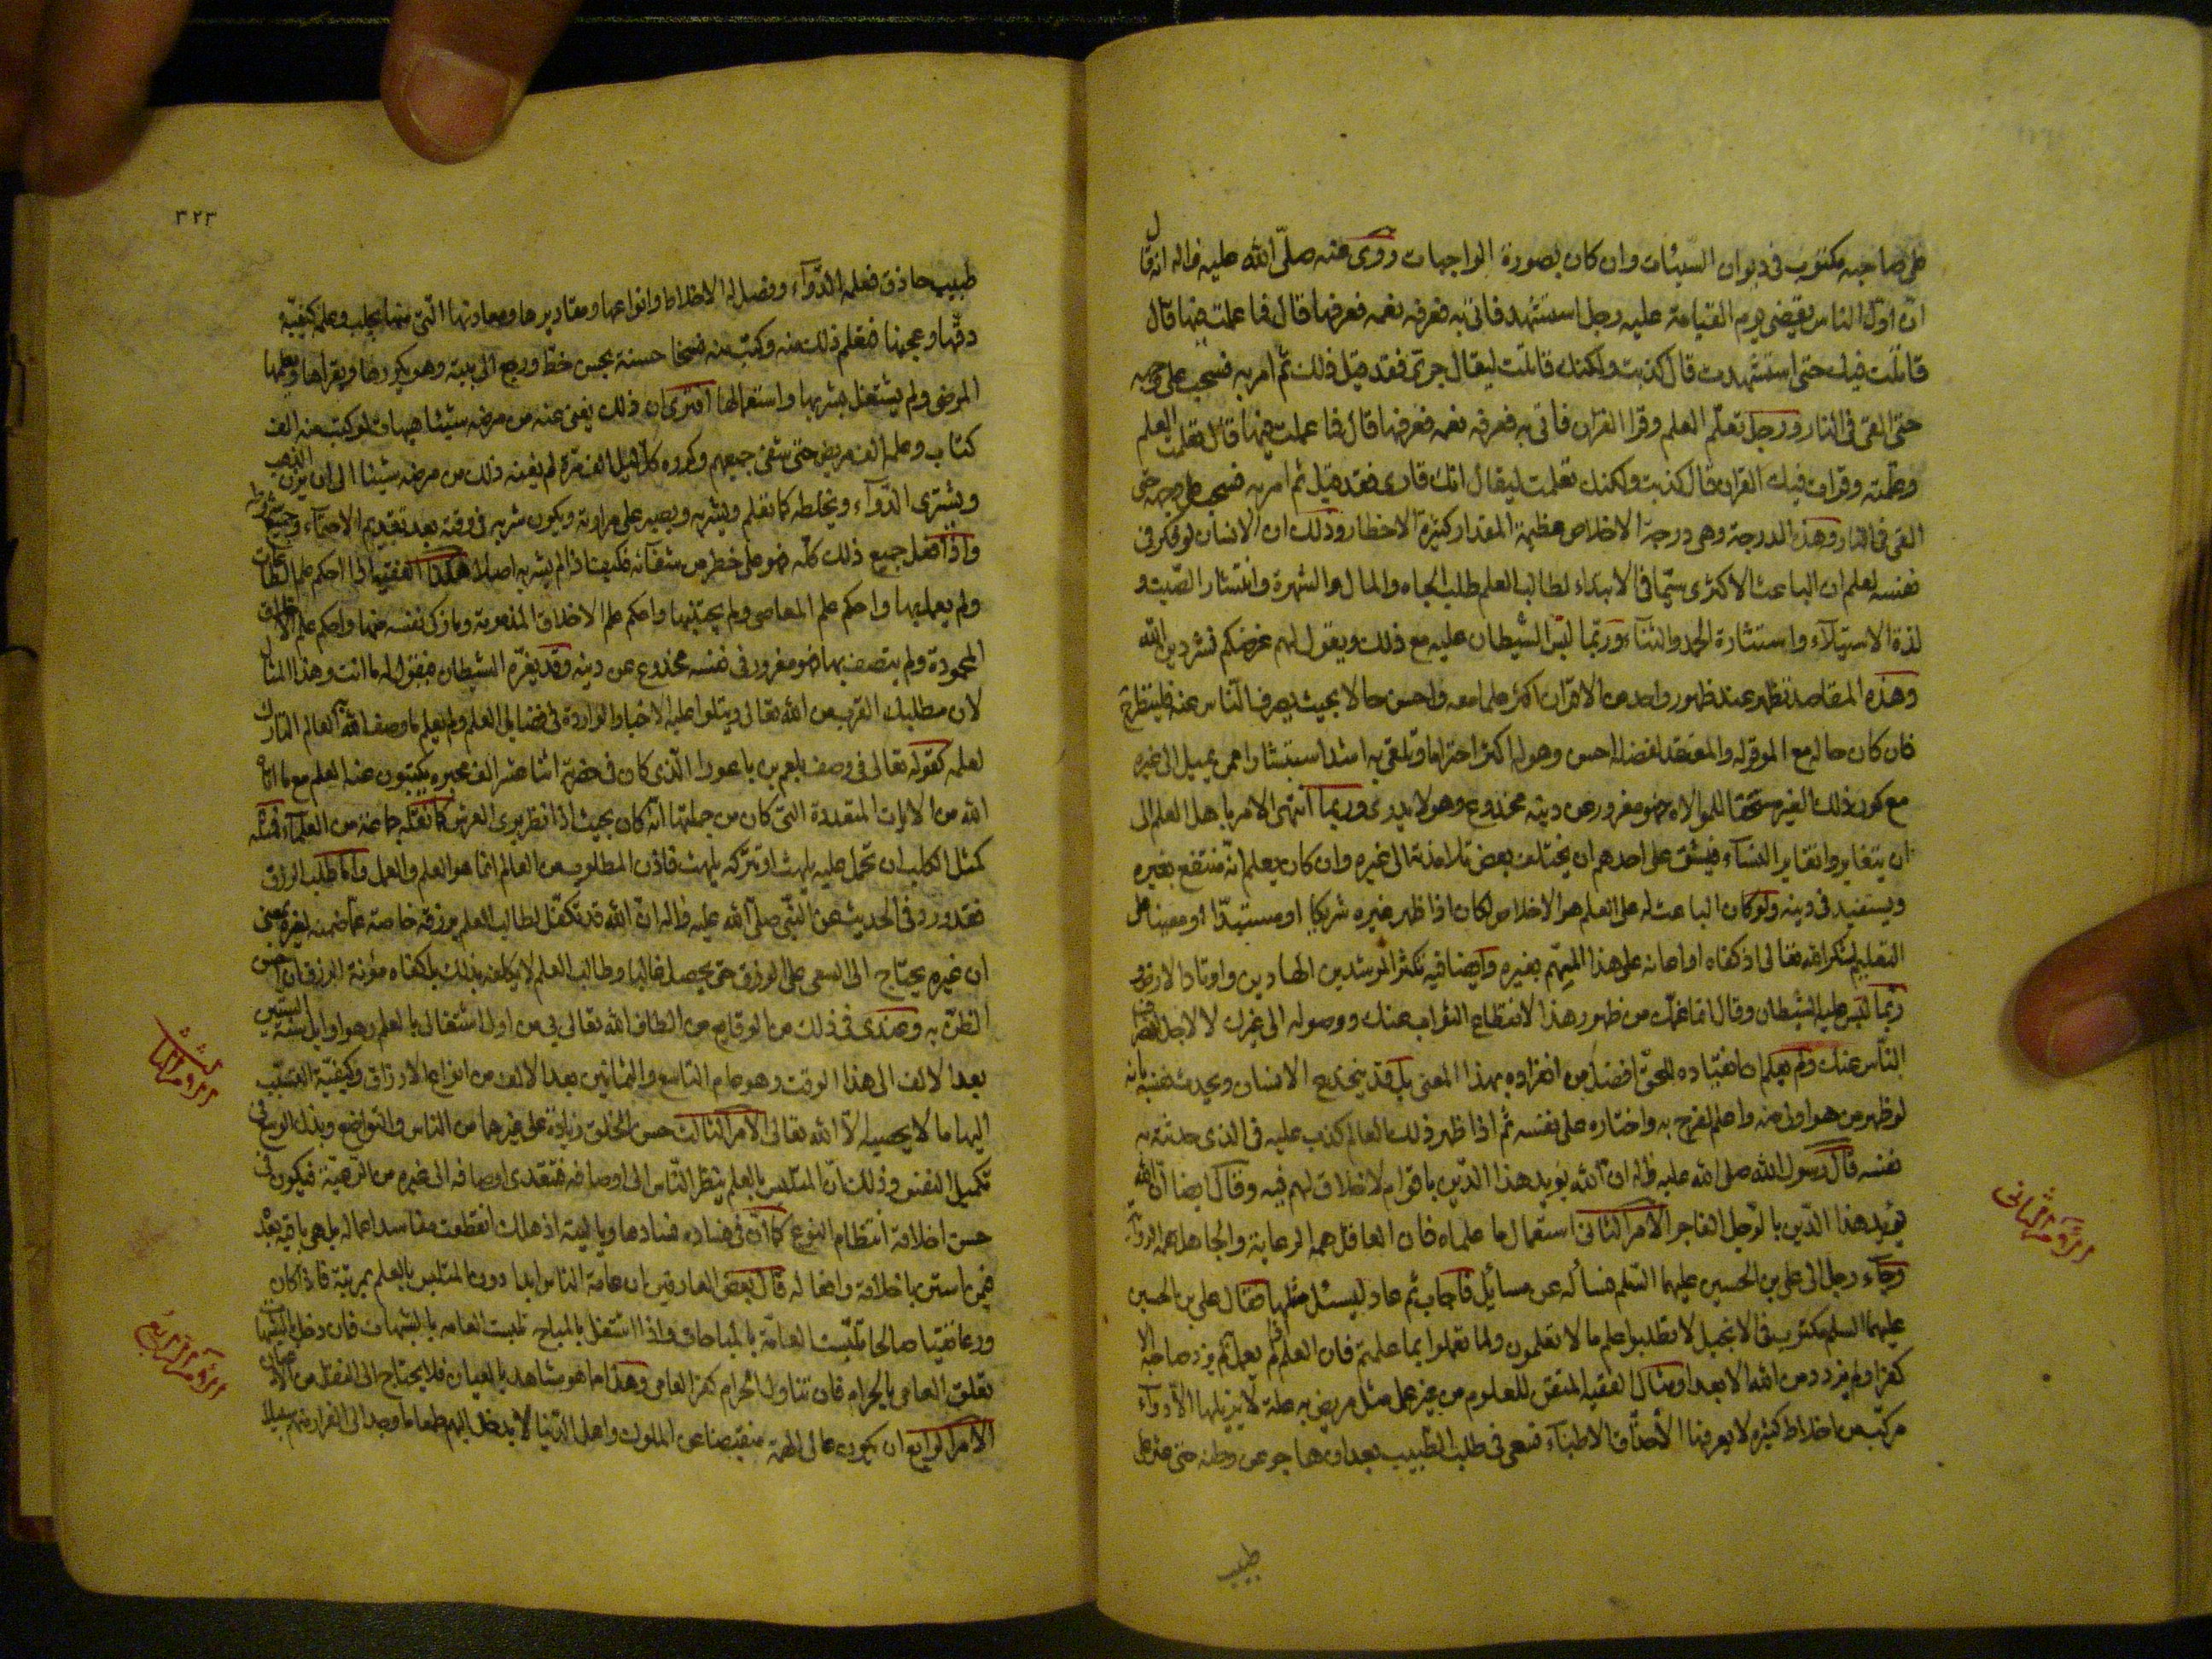 على صاحبه مكتوب في ديوان السيئات وان كان بصورة الواجبات روى عنه صلّى الله عليه واله انه قال
انّ اوّل الناس يقضى يوم القيامة عليه رجل استشهد فاتى به فعرفه نعمه فعرفها قال فما عملت فيها قال
قاتلت فيك حتى استشهدت قال كذبت ولكنك قاتلت ليقال جرئ فقد قيل ذلك ثم امر به فسحب على وجهه
حتى القى في النار ورجل تعلّم العلم وقرا القران فاتى به فعرفه نعمه فعرفها قال فما عملت فيها قال تعلمت العلم
وعلّمته وقرات فيك القران قال كذبت ولكنك تعلمت ليقال انك قارى فقد قيل ثم امر به فسحب على وجهه حتى
القى في النار وهذه الدرجة وهى درجة الاخلاص عظيمة المقدار كثيرة الاخطار وذلك ان الانسان لو فكر في
نفسه لعلم ان الباعث الاكثرى سيّما في الابتداء لطالب العلم طلب الجاه والمال والشهرة وانتشار الصّيت و
لذة الاستيلاء واستثارة الحمد والثناء وربّما لبّس الشيطان عليه مع ذلك ويقول لهم غرضكم نشر دين الله
وهذه المقاصد تظهر عند ظهور واحد من الاقران اكثر علما معه واحسن حالا بحيث يصرف الناس عنه فلينظر ح
فان كان حاله مع الموقر له والمعتقد لفضله احسن وهو له اكثر احتراما وتلقى به اشد استبشارا ممن يميل الى غيره
مع كون ذلك الغير مستحقا للموالاه فهو مغرور عن دينه مخدوع وهو لا يدرى وربما انتهى الامر باهل العلم الى
ان يتغايروا تغاير النساء فيشق على احدهم ان يختلف بعض تلامذته الى غيره وان كان يعلم انّه منتفع بغيره
ويستفيد في دينه ولو كان الباعث له على العلم هو الاخلاص لكان اذا ظهر غيره شريكا او مستبدّا او معينا على
التعليم لشكر الله تعالى اذ كفاه او اعانه على هذا المهم بغيره وايضا فيه تكثر المرشدين الهادين واوتاد الارض و
ربّما لبّس عليه الشيطان وقال انما غمّك من ظهور هذا لانقطاع الثواب عنك ووصوله الى غيرك لا لاجل
النّاس عنك ولم يعلم ان انقياده للحقّ افضل من انفراده بهذا المعنى بل قد ينخدع الانسان ويحدث نفسه بانه
لو ظهر من هو اولى منه واعلم لفرح به واختاره على نفسه ثم اذا ظهر ذلك العالم كذب عليه في الذى حدثته به
نفسه قال رسول الله صلى الله عليه واله ان الله يؤيد هذا الدّين باقوام لا خلاق لهم فيه وقال ايضا انّ الله
يؤيد هذا الدّين بالرّجل الفاجر الامر الثانى استعمال ما علماه فان العاقل همه الرعاية والجاهل همه الرواية
وجاء رجل الى على بن الحسين عليهما السّلم فساله عن مسايل فاجاب ثم عاد ليسئل مثلها فقال على بن الحسين
عليهما السلم مكتوب في الانجيل لا تطلبوا علم ما لا تعلمون ولما تعملوا بما علمتم فان العلم اذا لم يعمل به لم يزد صاحبه الا
كفرا ولم يزدد من الله الا بعدا ومثال الفقيه المتقن للعلوم من غير عمل مثل مريض به علة لا يزيلها الا دواء
مركّب من اخلاط كثيره لا يعرفها الا حذّاق الاطباء فسعى في طلب الطبيب بعد ان هاجر عن وطنه حتى عثر على
طبيب
الامر الثانى
٣٢٣
طبيب حاذق فعلمه الدّواء وفصل له الاخلاط وانواعها ومقاديرها ومعادنها التى منها يجلب وعلمه كيفيّة
دقّها وعجنها فتعلم ذلك منه وكتب منه نسخا حسنة بحسن خطّ ورجع الى بيته وهو يكررها ويقراها ويعلمها
المرضى ولم يشتغل بشربها واستعمالها افترى ان ذلك يغنى عنه من مرضه شيئا هيهات لو كتب منه الف
كتاب وعلمه الف مريض حتى شفى جميعهم وكرره كل ليل الف مرة لم يغنه ذلك من مرضه شيئا الى ان يزن الذهب
ويشترى الدّواء ويخلطه كما تعلم ويشربه ويصبر على مرارته ويكون شربه في وقته بعد تقديم الاحتماء وجميع شروطه
واذا فعل جميع ذلك كلّه فهو على خطر من شفائه فكيف اذا لم يشربه اصلا هكذا الفقيه اذا احكم علم الطاعات
ولم يعمل بها واحكم علم المعاصى ولم يجتنبها واحكم علم الاخلاق المذمومة وما زكى نفسه منها واحكم علم الاخلاق
المحمودة ولم يتصف بها فهو مغرور في نفسه مخدوع عن دينه وقد يغرّه الشيطان فيقول له ما انت وهذا المثال
لان مطلبك القرب من الله تعالى ويتلو عليه الاخبار الواردة في فضايل العلم ولم يعلم ما وصف الله العالم التارك
لعلمه كقوله تعالى في وصف بلعم بن باعورا الّذى كان في حضرته اثنا عشر الف محبره يكتبون عنه العلم مع ما اتاه
الله من الايات المتعددة التى كان من جملتها انّه كان بحيث اذا نظر يرى العرش كما نقله جماعة من العلماء فمثله
كمثل الكلب ان تحمل عليه يلهث او تتركه يلهث فاذن المطلوب من العالم انما هو العلم والعمل واما طلب الرزق
فقد ورد في الحديث عن النبّى صلّى الله عليه واله انّ الله قد تكفّل لطالب العلم برزقه خاصة عما ضمنه لغيره بمعنى
ان غيره يحتاج الى السعى على الرزق حتى يحصل غالبا وطالب العلم لا يكلفه بذلك بل كفاه مؤنة الرزق ان احسن
الظنّ به وعندى في ذلك من الوقايع من الطاف الله تعالى بى من اول اشتغالى بالعلم وهو اوايل سنة الستين
بعد الالف الى هذا الوقت وهو عام التاسع والثمانين بعد الالف من انواع الارزاق وكيفيّة التسبّب
اليها ما لا يحصيه الا الله تعالى الامر الثالث حسن الخلق زيادة على غيرهما من الناس والتواضع وبذل الوسع في
تكميل النفس وذلك انّ المتلبس بالعلم ينظر النّاس الى اوصافه فتتعدى اوصافه الى غيره من الرّعيّة فيكون في
حسن اخلاقه انتظام النوع كما انّ في فساده فسادها ويا ليته اذ هلك انقطعت مفاسد اعماله بل هى باقيه بعد
فيمن استن باخلاقه وافعاله قال بعض العارفين ان عامة الناس ابدا دون المتلبس بالعلم بمرتبة فاذا كان
ورعا تقيا صالحا تلبّست العامّة بالمباحات واذا اشتغل بالمباح تلبست العامه بالشبهات فان دخل في الشبهات
تعلق العامى بالحرام فان تناول الحرام كفر العامى وهذا ما هو مشاهد بالعيان فلا يحتاج الى النقل من الاعيان
الامر الرابع ان يكون عالى الهمّة منقبضا عن الملوك واهل الدّنيا لا يدخل اليهم طمعا ما وجد الى الفرار منهم سبيلا
الامر الثالث
الامر الرابع